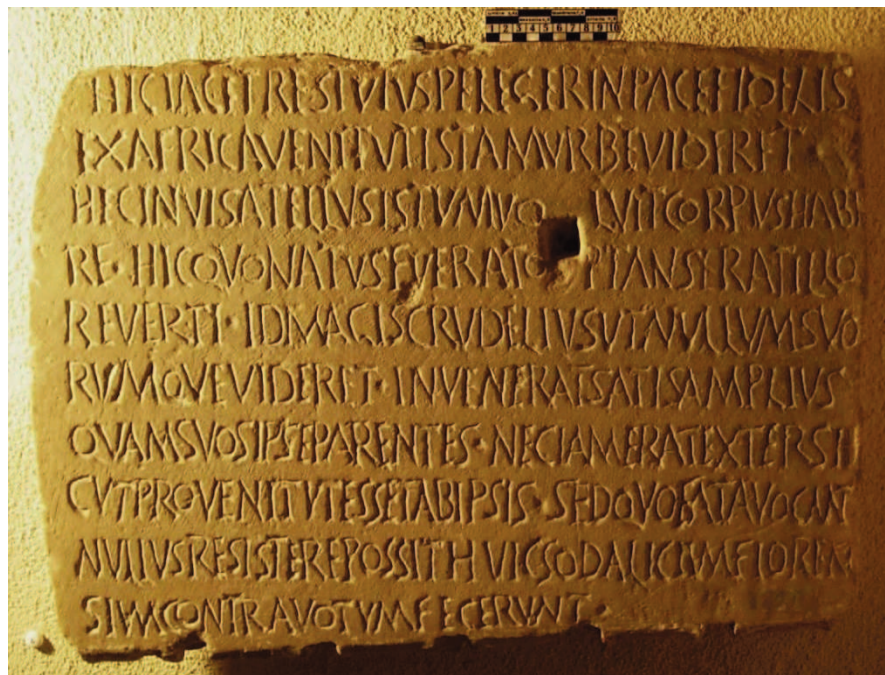 HIC IACET RESTVTVS PELEGER IN PACE FIDELIS
EX AFRICA VENIT VT ISTAM VRBE VIDERET
HEC INVISA TELLVS ISTVM VO LVIT CORPVS HABE
RE · HIC QVO NATVS FVERAT O PTANS ERAT ILLO
REVERTI · ID MAGIS CRVDELIVS VT NVLLVM SVO
RVM QVE VIDERET · INVENERAT SATIS AMPLIVS
QVAM SVOS IPSE PARENTES · NEC IAM ERAT EXTER SI
CVT PROVENIT VT ESSET AB IPSIS · SED QVO FATA VOCANT
NVLLVS RESISTERE POSSIT HVIC SODALICIVM FLOREN
SIVM CONTRA VOTVM FECERVNT ·